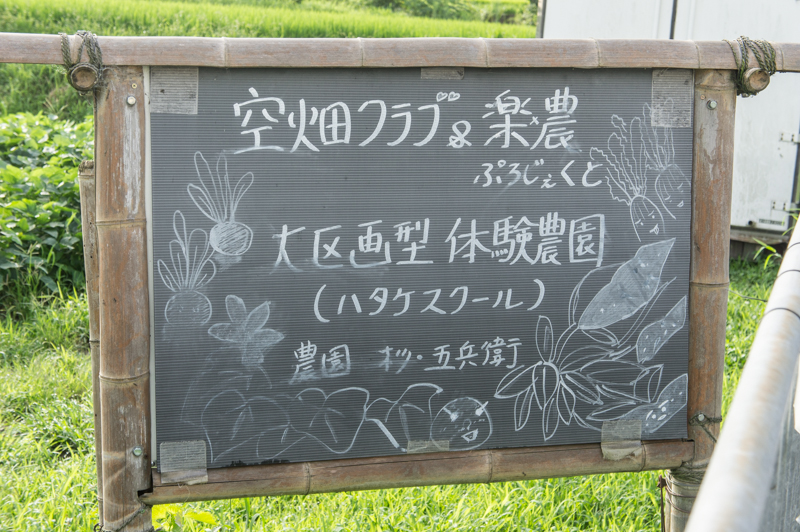 空畑クラブ&楽農
ぷろじぇくと
大区画型 体験農園
(ハタケスクール)
農園 ・五兵衛